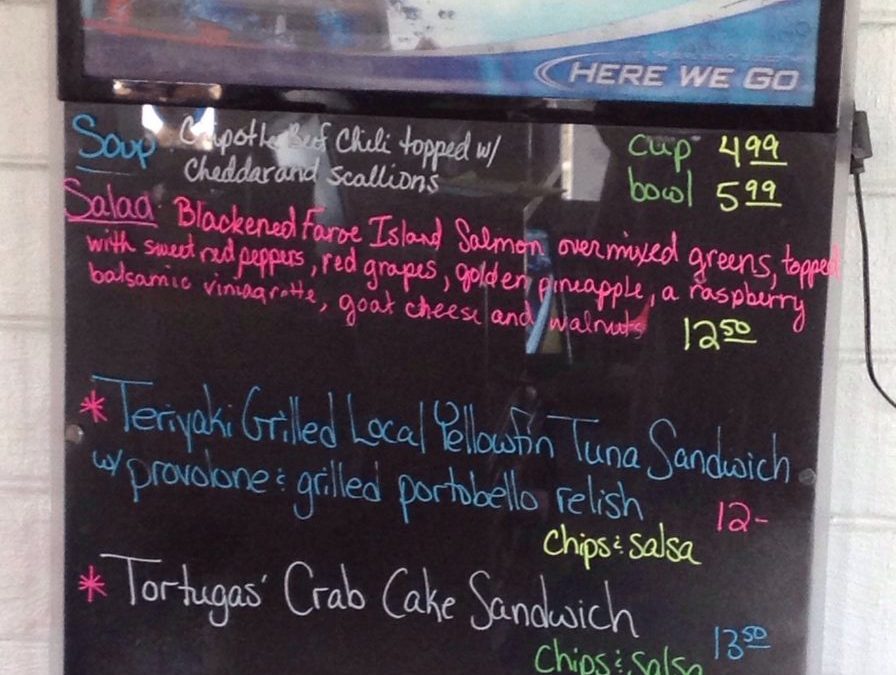 HERE WE GO
Soup Chipotle Beef Chili topped w/ cup 4.99
cheddar and scallions bowl 5.99
Salad Blackened Faroe Island Salmon over mixed greens, topped
with sweet red peppers, red grapes, golden pineapple, a raspberry
balsamic viniagrette, goat cheese and walnuts 12.50
* Teriyaki Grilled Local Yellowfin Tuna Sandwich
w/ provolone & grilled portobello relish 12-
chips & salsa
* Tortugas' Crab Cake Sandwich
13.50
chips & salsa